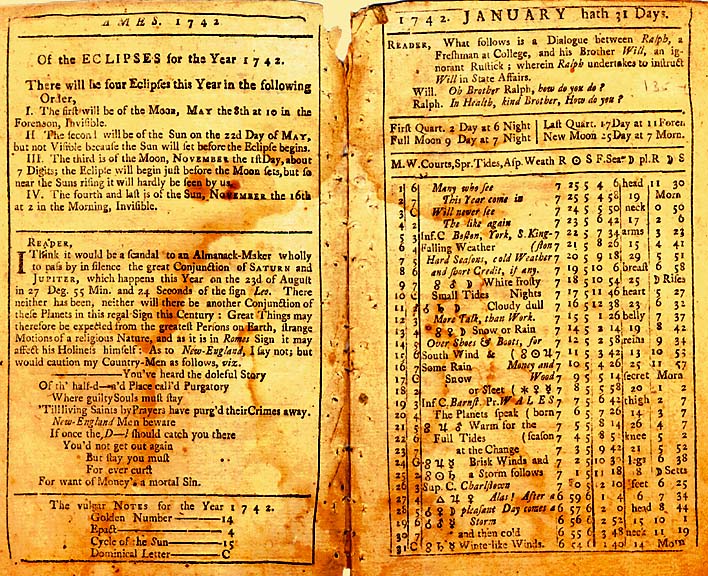 AMES. 1742
Of the ECLIPSES for the Year 1742.
There will be four Eclipses this Year in the following
Order,
I. The first will be of the Moon, MAY the 8th at 10 in the
Forenoon, Invisible.
II The second will be of the Sun on the 22d Day of MAY,
but not Visible because the Sun will set before the Eclipse begins.
III. The third is of the Moon, NOVEMBER the 1st Day, about
7 Digits; the Eclipse will begin just before the Moon sets, but so
near the Suns rising it will hardly be seen by us.
IV. The fourth and last is of the Sun, NOVEMBER the 16th
at 2 in the Morning, Invisible.
READER,
I Think it would be a scandal to an Almanack-Maker wholly
to pass by in silence the great Conjunction of SATURN and
JUPITER, which happens this Year on the 23d of August
in 27 Deg. 55 Min. and 24 Seconds of the sign Leo. There
neither has been, neither will there be another Conjunction of
these Planets in this regal Sign this Century: Great Things may
therefore be expected from the greatest Persons on Earth, strange
Motions of a religious Nature, and as it is Romes Sign it may
affect his Holiness himself: As to New-England, I say not; but
would caution my Country-Men as follows, viz.
You've heard the doleful Story
Of th' half-d—n'd Place call'd Purgatory
Where guilty Souls must stay
'Till living Saints by Prayers have purg'd their Crimes away.
New-England Men beware
If once the D—l should catch you there
You'd not get out again
But stay you must
For ever curst
For want of Money's a mortal Sin.
The vulgar NOTES for the Year 1742.
Golden Number——14
Epact——4
Cycle of the Sun——15
Dominical Letter——C
1742. JANUARY hath 31 Days.
READER, What follows is a Dialogue between Ralph, a
Freshman at College, and his Brother Will, an ig-
norant Rustick; wherein Ralph undertakes to instruct
Will in State Affairs.
Will. Oh Brother Ralph, how do you do?
Ralph. In Health, kind Brother, How do you?
First Quart. 2 Day at 6 Night | Last Quart. 17 Day at 11 Foren.
Full Moon 9 Day at 7 Night | New Moon 25 Day at 7 Morn.
M.W. Courts, Spr. Tides, Asp. Weath R ☉ S F. Sea ☽ pl. R ☽ S
1 6 Many who see 7 25 5 4 6 head 11 30
2 7 This Year come in 7 25 5 4 58 19 Morn
3 C Will never see 7 24 5 5 50 neck 0 50
4 2 The like again 7 23 5 6 42 17 2 6
5 3 Inf. C Boston, York, S. King- 7 22 5 7 34 arms 3 23
6 4 Falling Weather (ston 7 21 5 8 26 15 4 41
7 5 Hard Seasons, cold Weather 7 20 5 9 18 29 5 51
8 6 and short Credit, if any. 7 19 5 10 6 breast 6 58
9 7 White frosty 7 18 5 10 54 25 ☽ Rises
10 C Small Tides Nights 7 17 5 11 46 heart 5 27
11 Cloudy dull 7 16 5 12 38 23 5 32
12 3 More Talk, than Work. 26 belly 7 37
13 Snow or Rain 7 14 5 2 14 19 8 42
14 5 Over Shoes & Boots, for 7 12 5 2 58 reins 9 34
15 South Wind & 7 11 5 3 42 13 10 53
16 Some Rain Money and 7 10 5 4 26 25 11 57
17 C Snow Wood 7 9 5 5 14 secret Morn
18 or Sleet 7 8 5 5 58 20 1 2
19 3 Inf. C Barnst. Pr. WALES 7 7 5 6 42 thigh 2 7
20 The Planets speak (born 7 6 5 7 26 14 3 7
21 Warm for the 7 5 5 8 14 26 4 7
22 Full Tides (season 7 4 5 8 knee 5 2
23 at the Change 7 3 5 9 42 21 5 52
24 C Brisk Winds and 7 2 5 10 30 legs 6 38
25 a Storm follows 7 1 5 11 18 8 ☽ Setts
26 3 Sup. C. Charlstown 7 0 5 12 10 feet 6 25
27 4 Alas! After a 6 59 6 1 4 6 7 34
28 pleasant Day comes a 6 57 6 2 0 head 8 44
29 6 Storm 6 56 6 2 52 15 10 1
30 7 and then cold 6 55 6 3 48 neck 11 19
31 C Winter-like Winds. 6 54 6 40 14 Morn